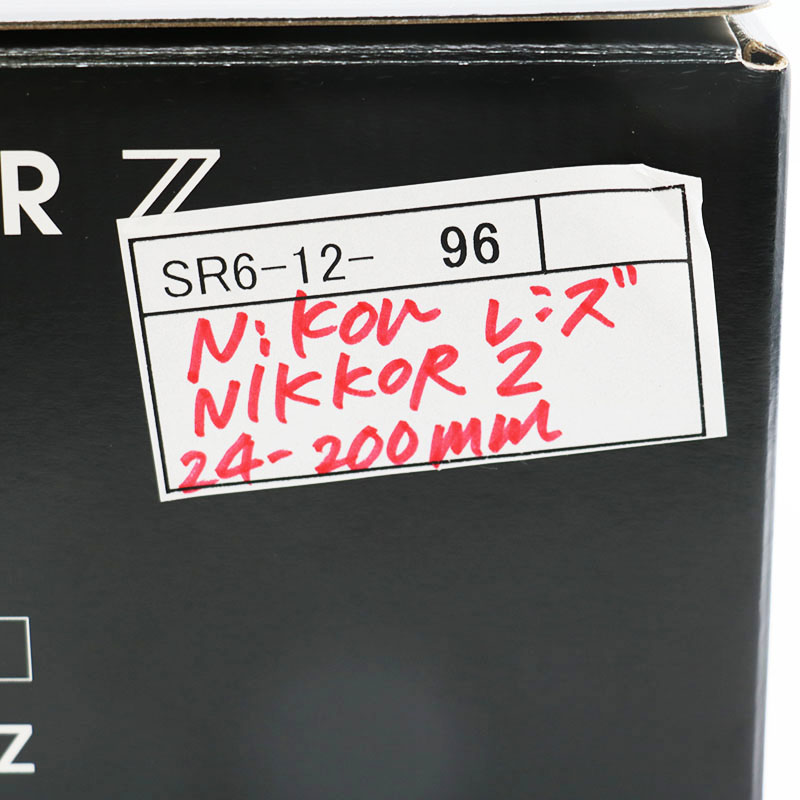 R Z
SR6-12- 96
Nikon レンズ
NIKKOR Z
24-200mm
Z